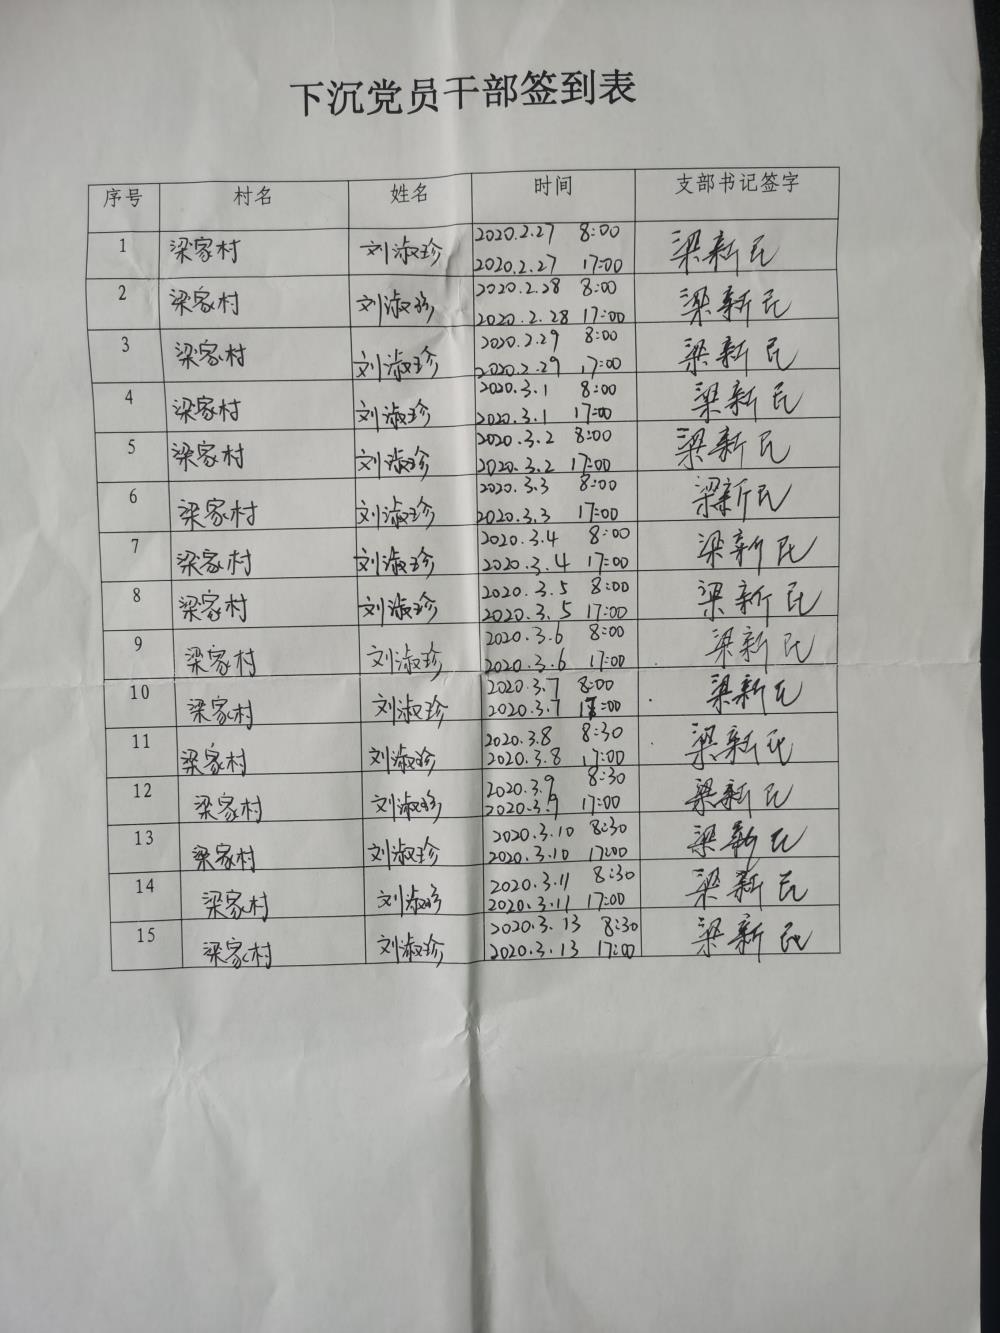 下沉党员干部签到表
序号 村名 姓名 时间 支部书记签字
1 梁家村 刘淑珍 2020.2.27 8:00 梁新民
2020.2.27 17:00
2 梁家村 刘淑珍 2020.2.28 8:00 梁新民
2020.2.28 17:00
3 梁家村 刘淑珍 2020.2.29 8:00 梁新民
2020.2.29 17:00
4 梁家村 刘淑珍 2020.3.1 8:00 梁新民
2020.3.1 17:00
5 梁家村 刘淑珍 2020.3.2 8:00 梁新民
2020.3.2 17:00
6 梁家村 刘淑珍 2020.3.3 8:00 梁新民
2020.3.3 17:00
7 梁家村 刘淑珍 2020.3.4 8:00 梁新民
2020.3.4 17:00
8 梁家村 刘淑珍 2020.3.5 8:00 梁新民
2020.3.5 17:00
9 梁家村 刘淑珍 2020.3.6 8:00 梁新民
2020.3.6 17:00
10 梁家村 刘淑珍 2020.3.7 8:00 梁新民
2020.3.7 17:00
11 梁家村 刘淑珍 2020.3.8 8:30 梁新民
2020.3.8 17:00
12 梁家村 刘淑珍 2020.3.9 8:30 梁新民
2020.3.9 17:00
13 梁家村 刘淑珍 2020.3.10 8:30 梁新民
2020.3.10 17:00
14 梁家村 刘淑珍 2020.3.11 8:30 梁新民
2020.3.11 17:00
15 梁家村 刘淑珍 2020.3.13 8:30 梁新民
2020.3.13 17:00